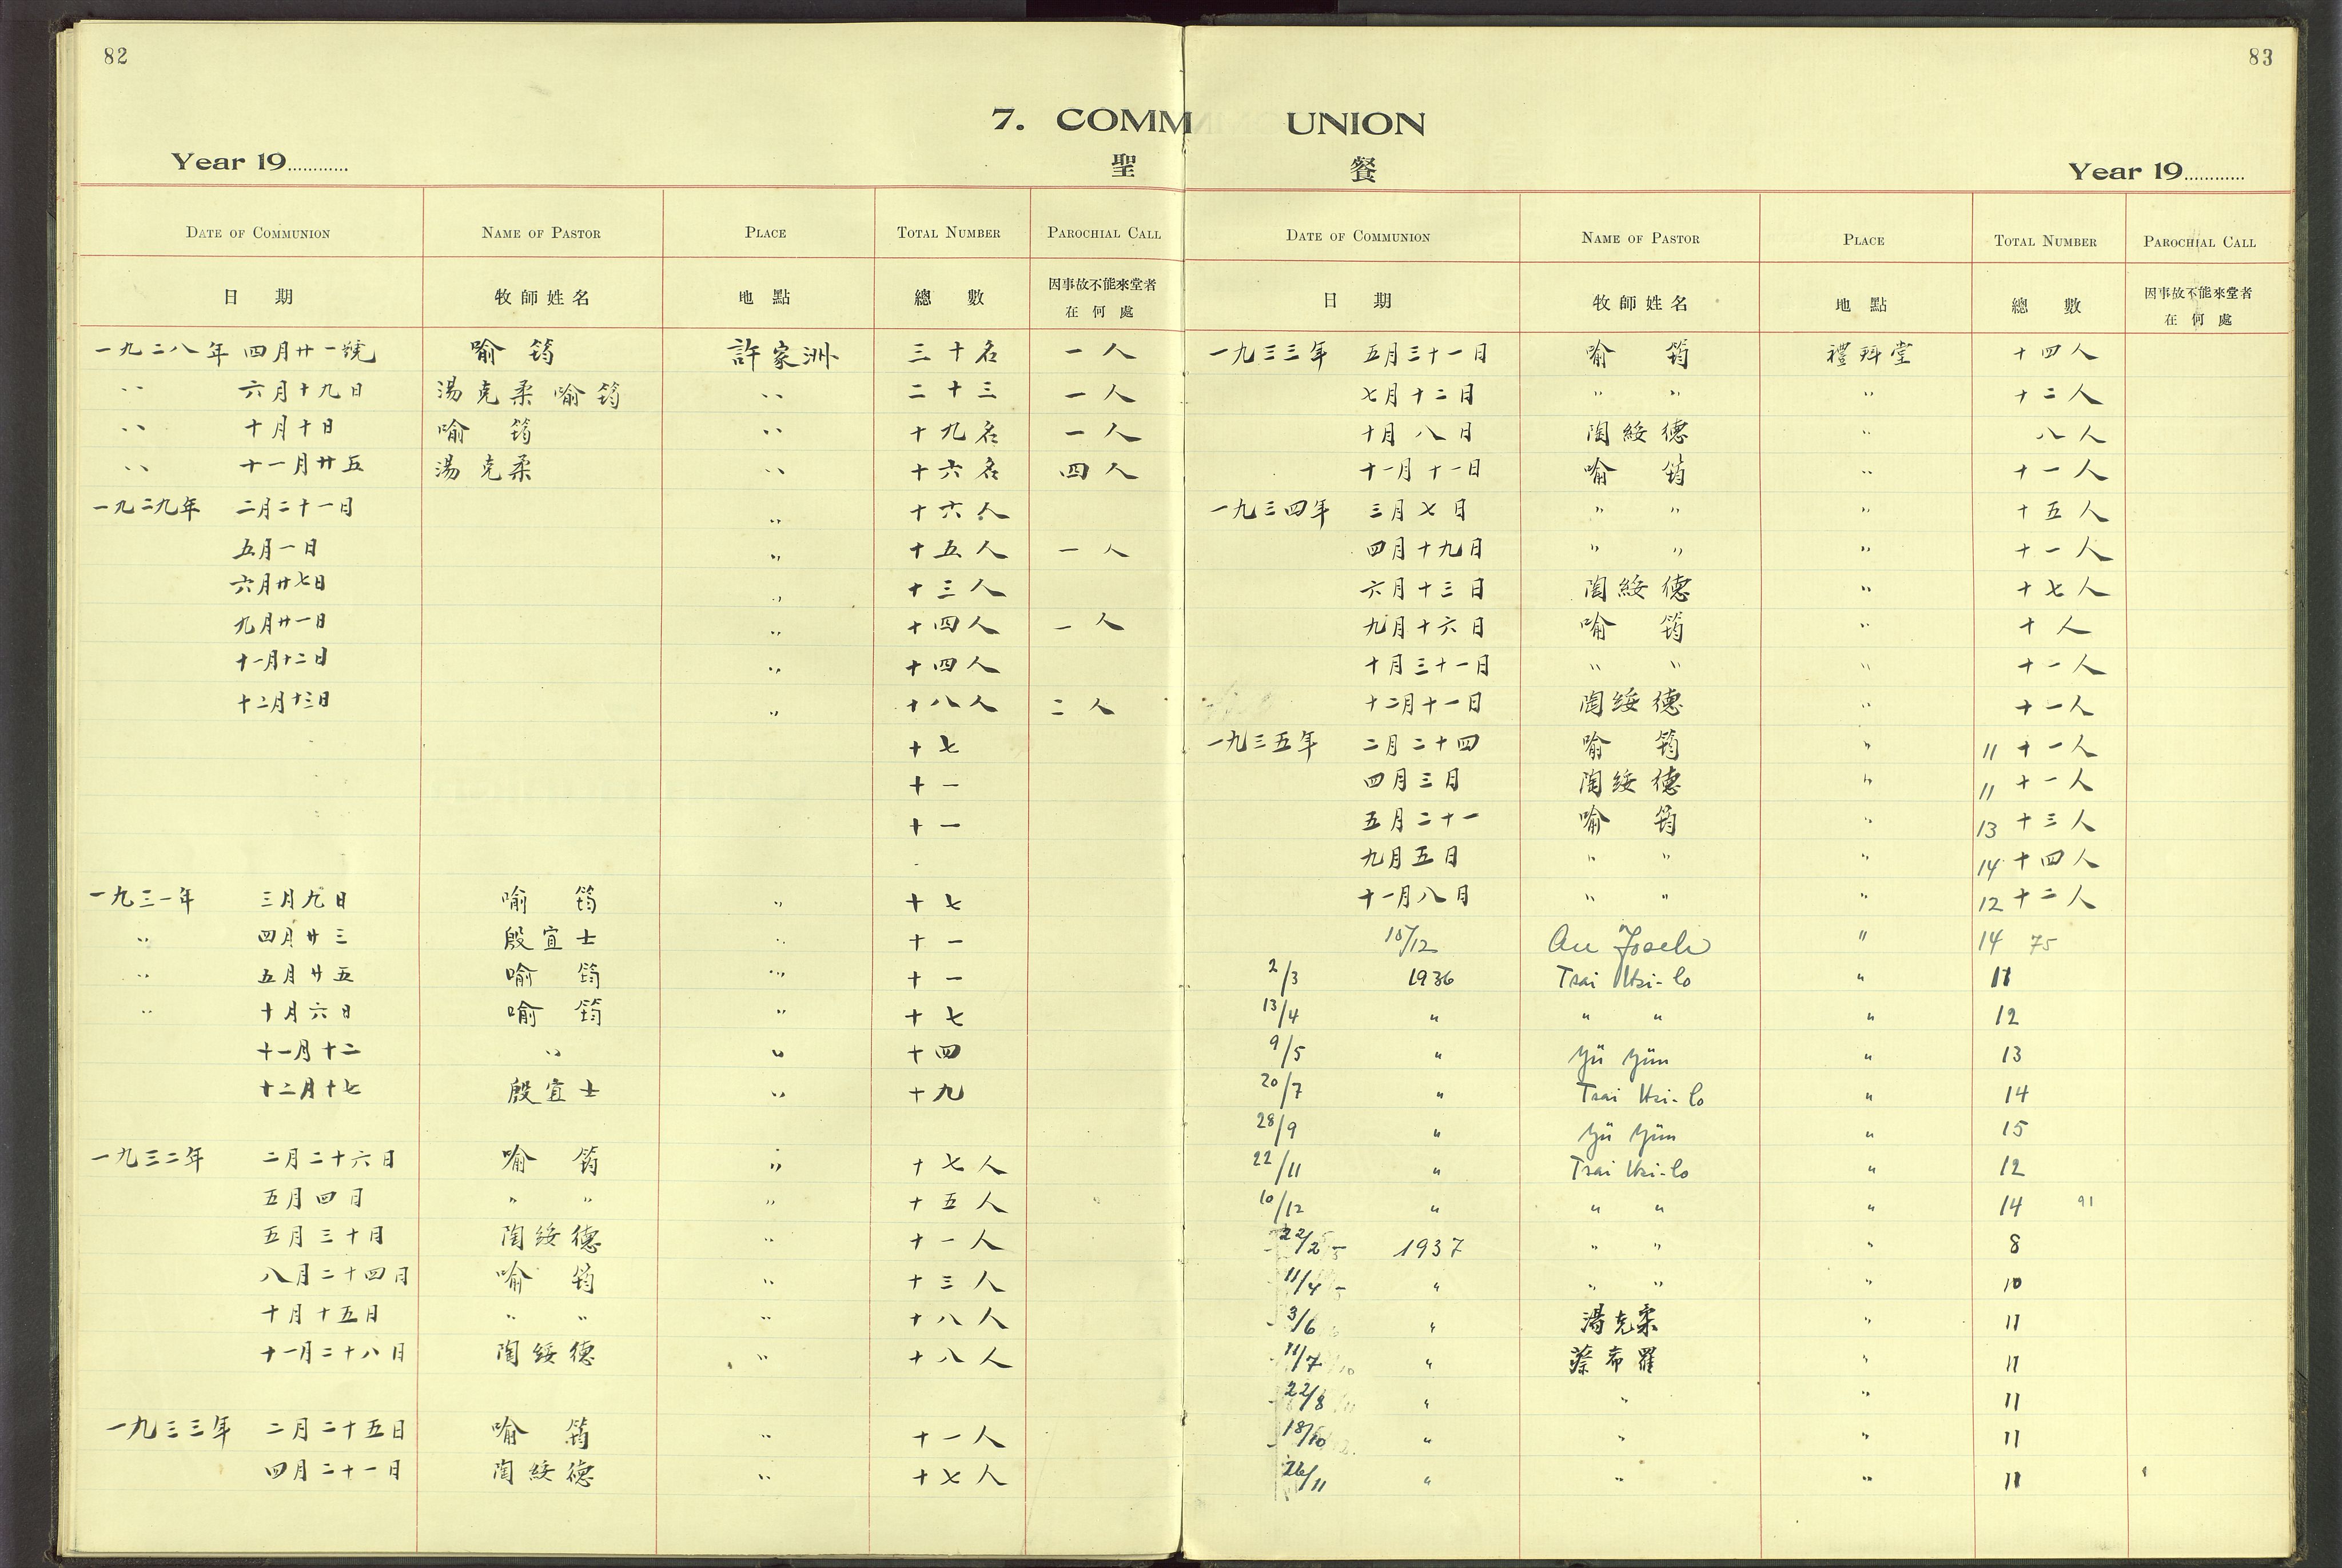 82
7. COMM
Year 19............
聖
DATE OF COMMUNION NAME OF PASTOR PLACE TOTAL NUMBER PAROCHIAL CALL
日 期 牧師姓名 地點 總數 因事故不能來堂者
在何處
一九二八年 四月廿一號 喻筠 許家洲 三十名 一人
〃 六月十九日 湯克柔 喻筠 〃 二十三 一人
〃 十月十日 喻筠 〃 十九名 一人
〃 十一月廿五 湯克柔 〃 十六名 四人
一九二九年 二月二十一日 〃 十六人
五月一日 〃 十五人 一人
六月廿七日 〃 十三人
九月廿一日 〃 十四人 一人
十一月十二日 〃 十四人
十二月十三日 〃 十八人 二人
十七
十一
十一
一九三一年 三月九日 喻筠 〃 十七
〃 四月廿三 殷宣士 〃 十一
〃 五月廿五 喻筠 〃 十一
〃 十月六日 喻筠 〃 十七
十一月十二 〃 〃 十四
十二月十七 殷宣士 〃 十九
一九三二年 二月二十六日 喻筠 〃 十七人
五月四日 〃 〃 〃 十五人
五月三十日 陶綏德 〃 十一人
八月二十四日 喻筠 〃 十三人
十月十五日 〃 〃 〃 十八人
十一月二十八日 陶綏德 〃 十八人
一九三三年 二月二十五日 喻筠 〃 十一人
四月二十一日 陶綏德 〃 十七人
83
UNION
餐
Year 19............
DATE OF COMMUNION NAME OF PASTOR PLACE TOTAL NUMBER PAROCHIAL CALL
日 期 牧師姓名 地點 總數 因事故不能來堂者
在何處
一九三三年 五月三十一日 喻筠 禮拜堂 十四人
七月十二日 〃 〃 〃 十二人
十月八日 陶綏德 〃 八人
十一月十一日 喻筠 〃 十一人
一九三四年 三月七日 〃 〃 〃 十五人
四月十九日 〃 〃 〃 十一人
六月十三日 陶綏德 〃 十七人
九月十六日 喻筠 〃 十人
十月三十一日 〃 〃 〃 十一人
十二月十一日 陶綏德 〃 十一人
一九三五年 二月二十四 喻筠 〃 11 十一人
四月三月 陶綏德 〃 11 十一人
五月二十一 喻筠 〃 13 十三人
九月五日 〃 〃 〃 14 十四人
十一月八日 〃 〃 〃 12 十二人
15/12 〃 14 75
2/3 1936 Tsai Hsi-lo 〃 11
13/4 〃 〃 〃 〃 12
9/5 〃 Yü Yün 〃 13
20/7 〃 Tsai Hsi-lo 〃 14
28/9 〃 Yü Yün 〃 15
22/11 〃 Tsai Hsi-lo 〃 12
10/12 〃 〃 〃 〃 14 91
22/2 1937 〃 〃 〃 8
11/4 〃 〃 〃 〃 10
3/6 〃 湯克柔 〃 11
11/7 〃 蔡希羅 〃 11
22/8 〃 〃 〃 11
18/10 〃 〃 〃 11
26/11 〃 〃 〃 11